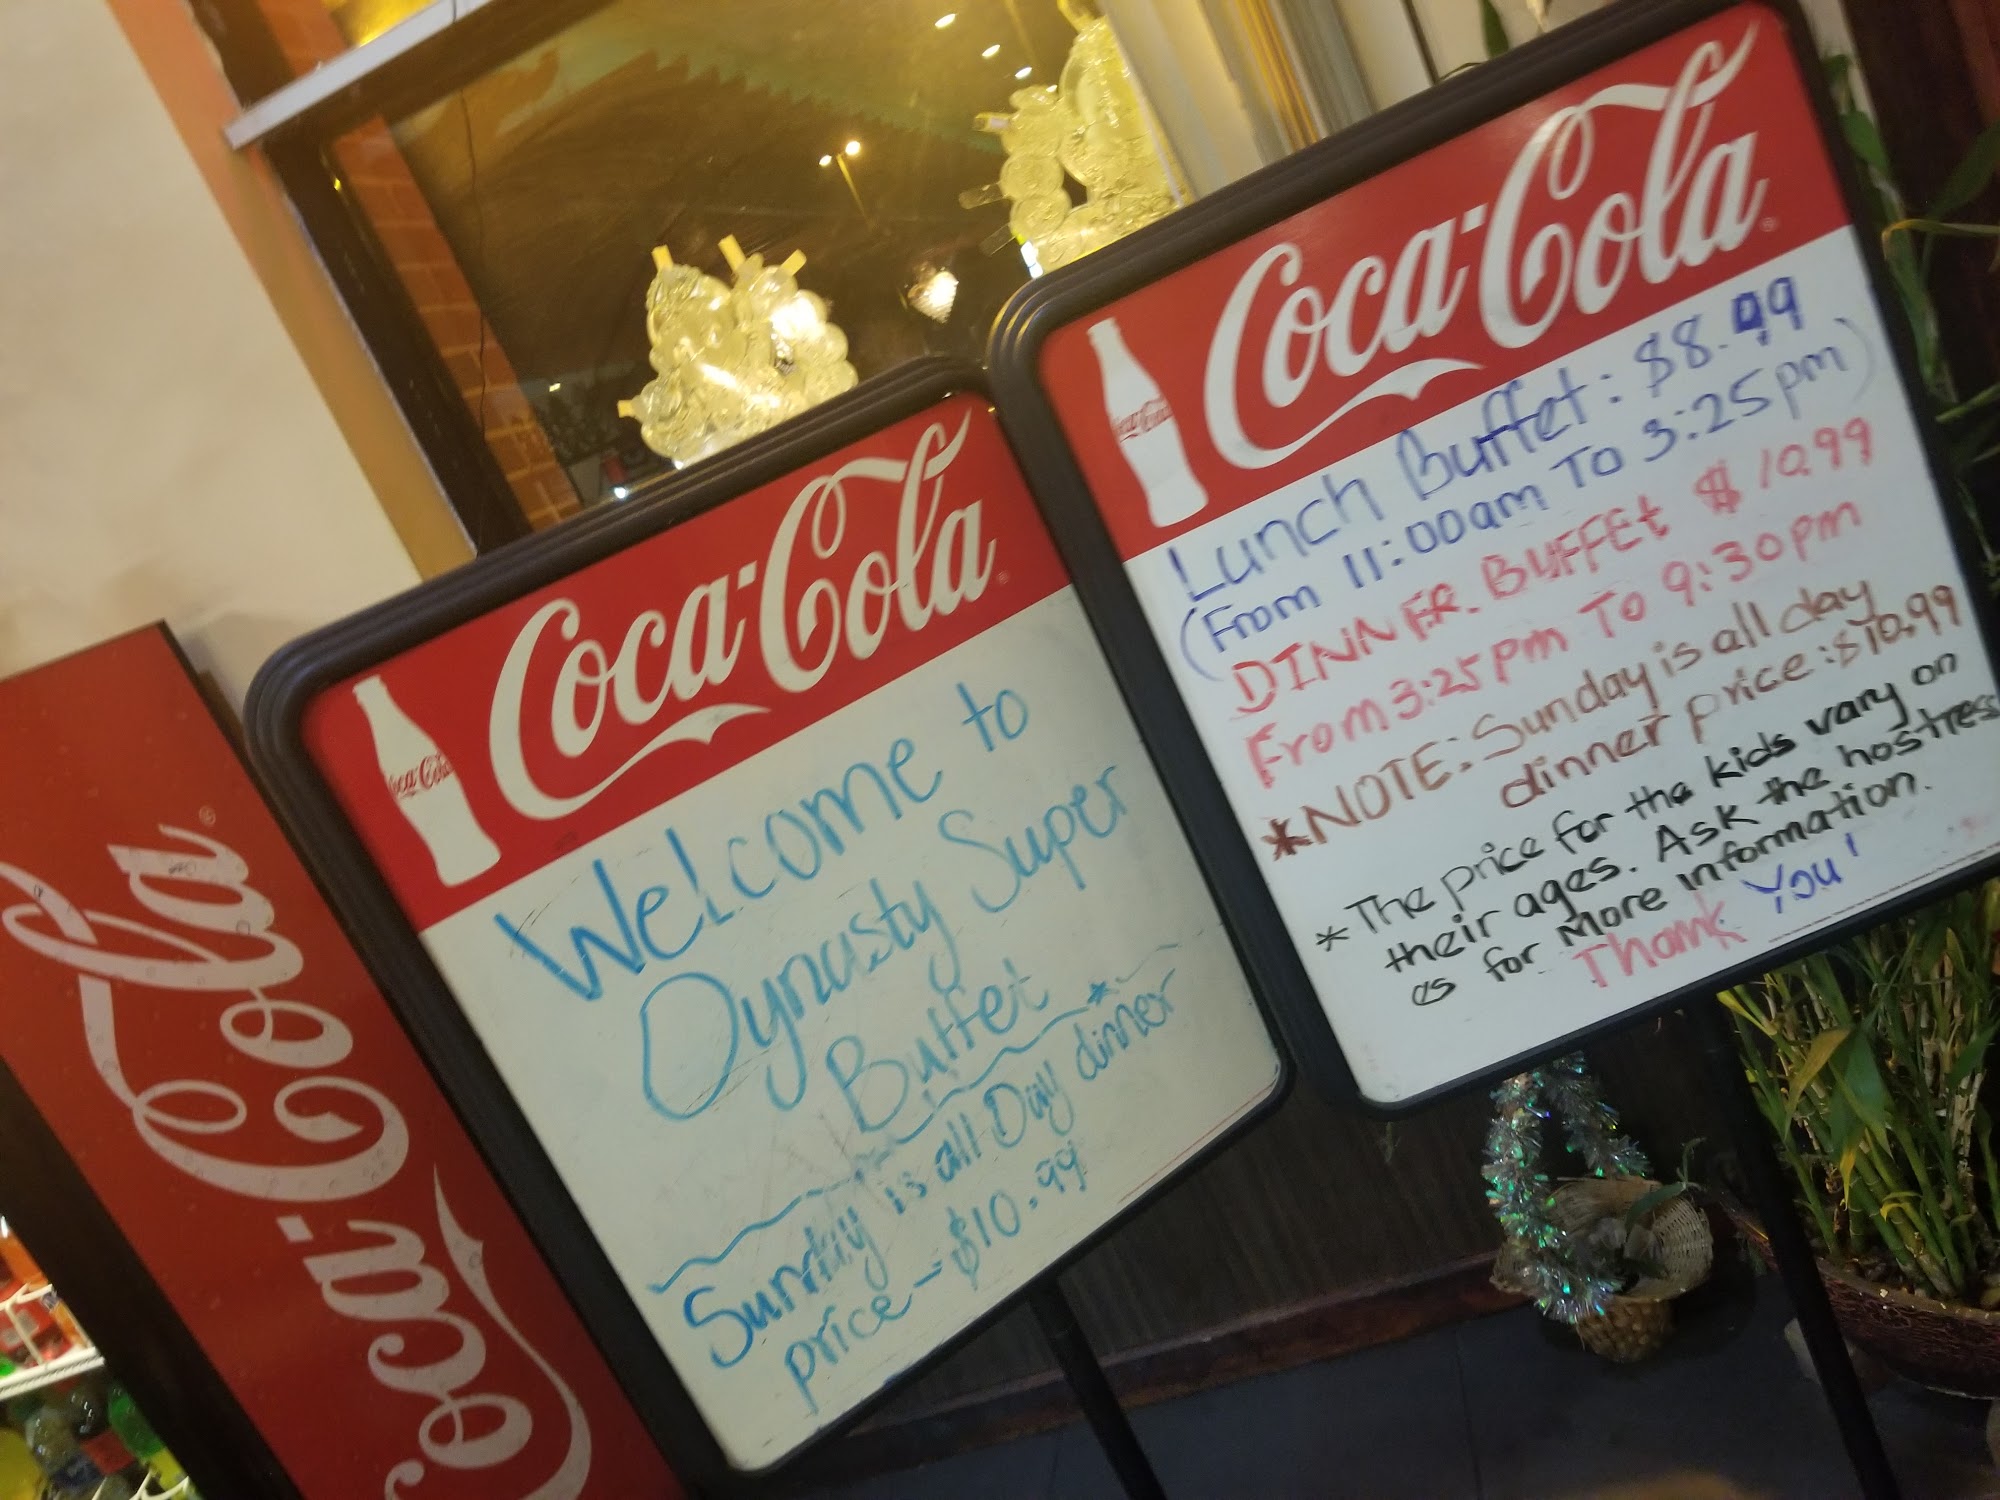 Coca-Cola
Coca-Cola
Coca-Cola
Welcome to
Dynasty Super
Buffet
Sunday is all Day dinner*
price - $10.99
Coca-Cola
Coca-Cola
Lunch Buffet: $8.99
(From 11:00am To 3:25pm)
DINNER BUFFEt $10.99
From 3:25pm To 9:30pm
*NOTE: Sunday is all day
dinner price: $10.99
* The price for the kids vary on
their ages. Ask the hostress
as for More information.
Thank You!